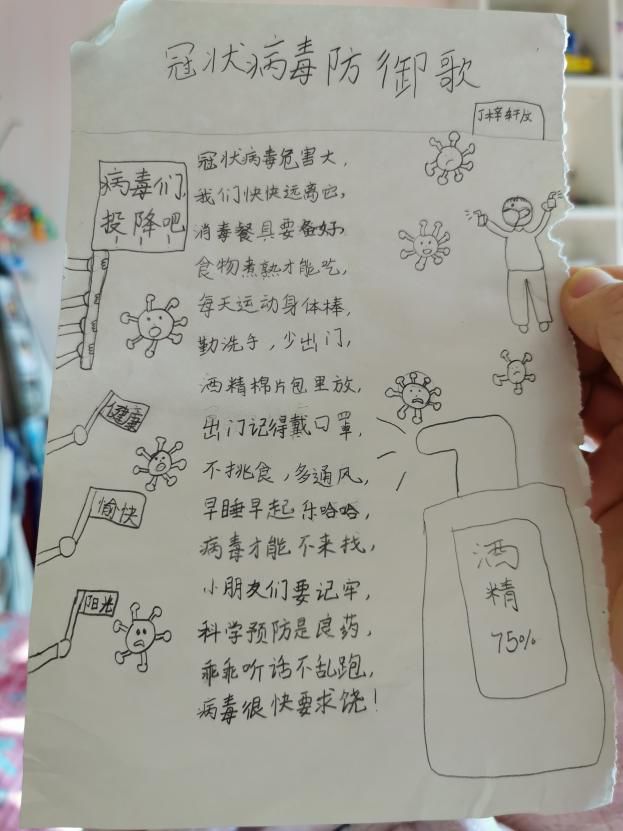 冠状病毒防御歌
丁梓轩
病毒们,
投降吧
冠状病毒危害大,
我们快快远离它,
消毒餐具要备好,
食物煮熟才能吃,
每天运动身体棒,
勤洗手,少出门,
酒精棉片包里放,
出门记得戴口罩,
不挑食,多通风,
早睡早起乐哈哈,
病毒才能不来找,
小朋友们要记牢,
科学预防是良药,
乖乖听话不乱跑,
病毒很快要求饶!
健康
愉快
阳光
酒
精
75%